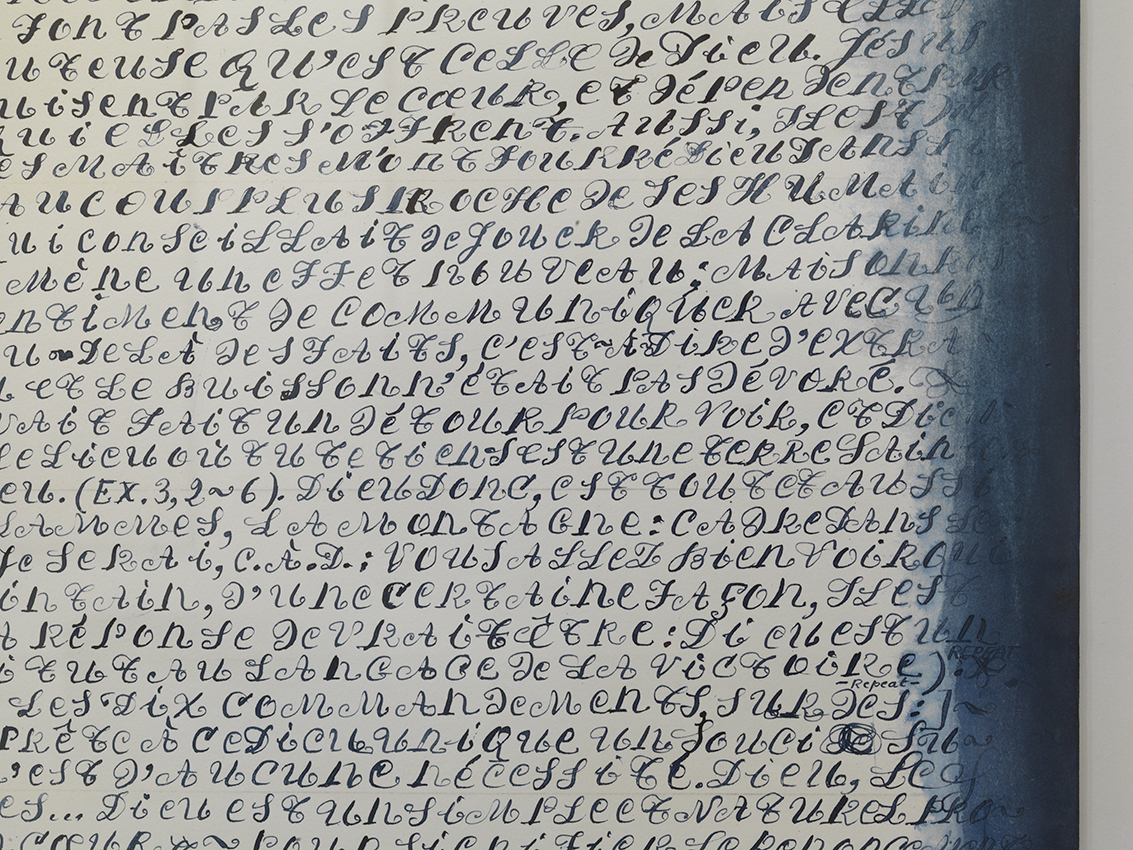 FONT PAS LES PREUVES, MAIS ELLES
UTEUSE QU'EST CELLE De Dieu. JéSUS
UISENT PAR Le CŒUR, ET DÉPENDENT
QUI ELLES S'OFFRENT. AUSSI, IL EST
ES MAITRES M'ONT FOURRÉ DIEU DANS
AUCOUP PLUS PROCHE De SES HUMAIN
UI CONSEILLAIT De JOUER De LA CLARINE
MÈNE UN EFFET NOUVEAU: MAIS ON
ENTIMENT De COMMUNIQUER AVEC UN
U~DELÀ DES FAITS, C'EST~À DIRE D'EXTRA~
ET LE BUISSON N'ÉTAIT PAS DÉVORÉ.
VAIT FAIT UN DÉTOUR POUR VOIR, ET DIEU
LE LIEU OÙ TU TE TIENS EST UNE TERRE SAIN
EU. (EX. 3, 2~6). DIEU DONC, EST TOUT ET AUSSI
FLAMMES, LA MONTAGNE: CADRE DANS
JE SERAI, C.A.D.: VOUS ALLEZ BIEN VOIR QUI
INTAIN, D'UNE CERTAINE FAÇON, IL EST
RÉPONSE DE VRAI ÊTRE: DIEU EST UN
REPEAT
ITUT AU LANGAGE DE LA VICTOIRE).
-Repeat-
LES DIX COMMANDEMENTS, SUR DES:]~
PRÊTE À CE DIEU UNIQUE UN SOUCI SU~
'EST D'AUCUNE NÉCESSITÉ. DIEU, LEQ
ES... DIEU EST UN SIMPLE ET NATUREL PRO~
CŒUR ~ POUR SIGNIFIER LE